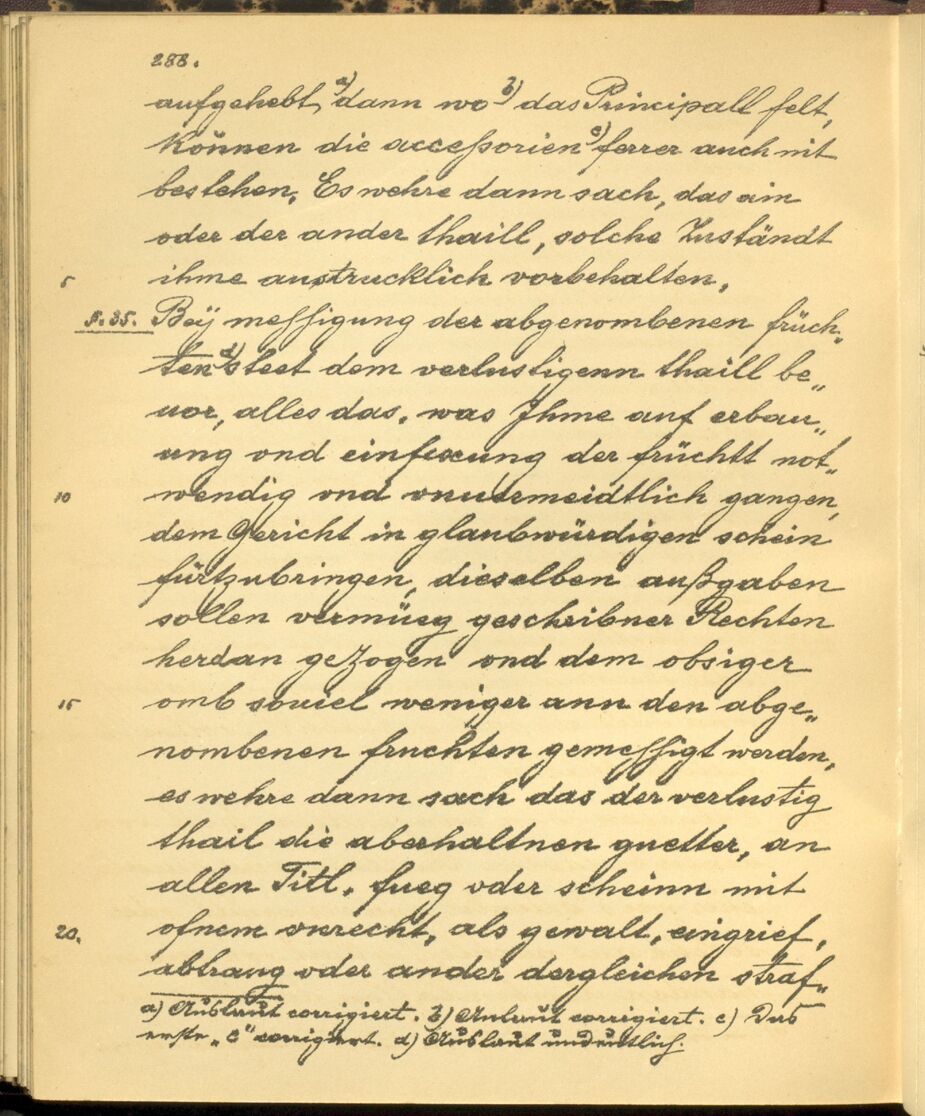 288.
aufgehebt, a) dann wo b) das Principall felt,
Können die accessorien c) ferrer auch nit
bestehen. Es wehre dann sach, das ain
oder der ander thaill, solche Zuständt
5 ihme austrucklich vorbehalten.
f. 35. Beÿ messigung der abgenombenen früch„
ten d) steet dem verlustigenn thaill be„
uor, alles das, was Ihme auf erbau„
ung vnd einfexung der früchtt not„
10 wendig vnd vnuermeidtlich gangen,
dem Gericht in glaubwürdigen schein
fürtzubringen, dieselben außgaben
sollen vermüeg geschribner Rechten
herdan gezogen vnd dem obsiger
15 omb souiel weniger ann den abge„
nombenen fruchten gemessigt werden,
es wehre dann sach das der verlustig
thail die aberhaltnen guetter, an
allen Titl, fueg oder scheinn mit
20. ofnem vnrecht, als gewalt, eingrief,
abtrang oder ander dergleichen straf„
a) Auslaut corrigiert. b) Anlaut corrigiert. c) Das
erste „e" corrigiert. d) Auslaut undeutlich.